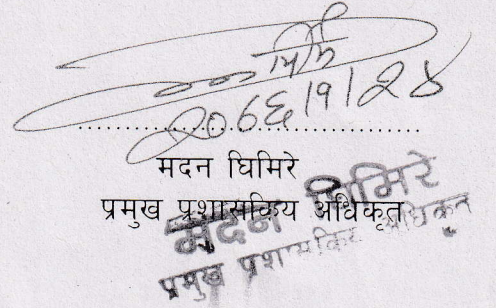 २०६६/१/२४
मदन घिमिरे
प्रमुख प्रशासकिय अधिकृत
मदन घिमिरे
प्रमुख प्रशासकिय अधिकृत